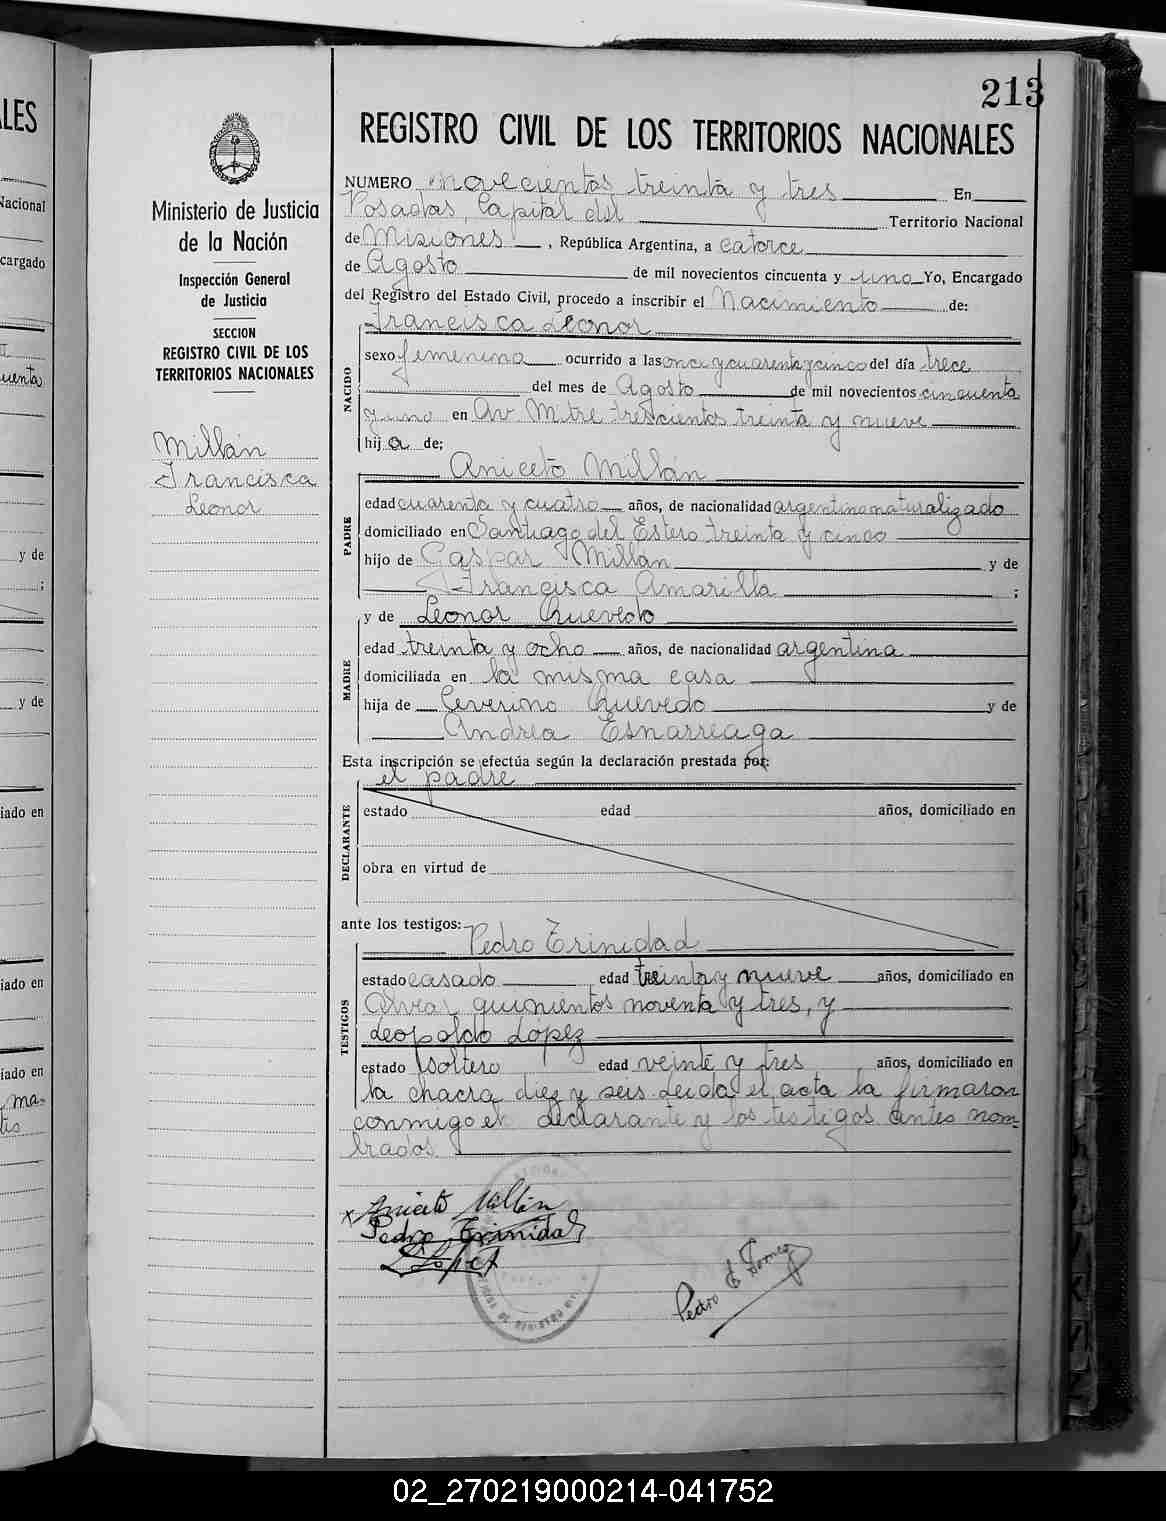 213
REGISTRO CIVIL DE LOS TERRITORIOS NACIONALES
Ministerio de Justicia
de la Nación
Inspección General
de Justicia
SECCION
REGISTRO CIVIL DE LOS
TERRITORIOS NACIONALES
Millán
Francisca
Leonor
NUMERO novecientos treinta y tres En
Posadas, Capital del Territorio Nacional
de Misiones, República Argentina, a catorce
de Agosto de mil novecientos cincuenta y uno Yo, Encargado
del Registro del Estado Civil, procedo a inscribir el Nacimiento de:
Francisca Leonor
NACIDO
sexo femenino ocurrido a las once y cuarenta y cinco del día trece
del mes de Agosto de mil novecientos cincuenta
y uno en Av Mitre trescientos treinta y nueve
hij a de;
Aniceto Millán
PADRE
edad cuarenta y cuatro años, de nacionalidad argentino naturalizado
domiciliado en Santiago del Estero treinta y cinco
hijo de Gaspar Millán y de
Francisca Amarilla ;
y de Leonor Quevedo
MADRE
edad treinta y ocho años, de nacionalidad argentina
domiciliada en la misma casa
hija de Ceverino Quevedo y de
Andrea Esnarreaga
Esta inscripción se efectúa según la declaración prestada por:
el padre
DECLARANTE
estado edad años, domiciliado en
obra en virtud de
ante los testigos:
Pedro Trinidad
TESTIGOS
estado casado edad treinta y nueve años, domiciliado en
Alvear quinientos noventa y tres, y
Leopoldo López
estado soltero edad veinte y tres años, domiciliado en
la chacra diez y seis Leida el acta la firmaron
conmigo el declarante y los testigos antes nom-
brados
Aniceto Millán
Pedro Trinidad
L López
Pedro E Gomez
LES
Nacional
cargado
uenta
y de
;
y de
iado en
iado en
iado en
02_270219000214-041752